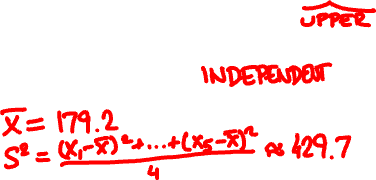 UPPER
INDEPENDENT
X̄ = 179.2
S² = (x₁-x̄)²+...+(x₅-x̄)² / 4 ≈ 429.7